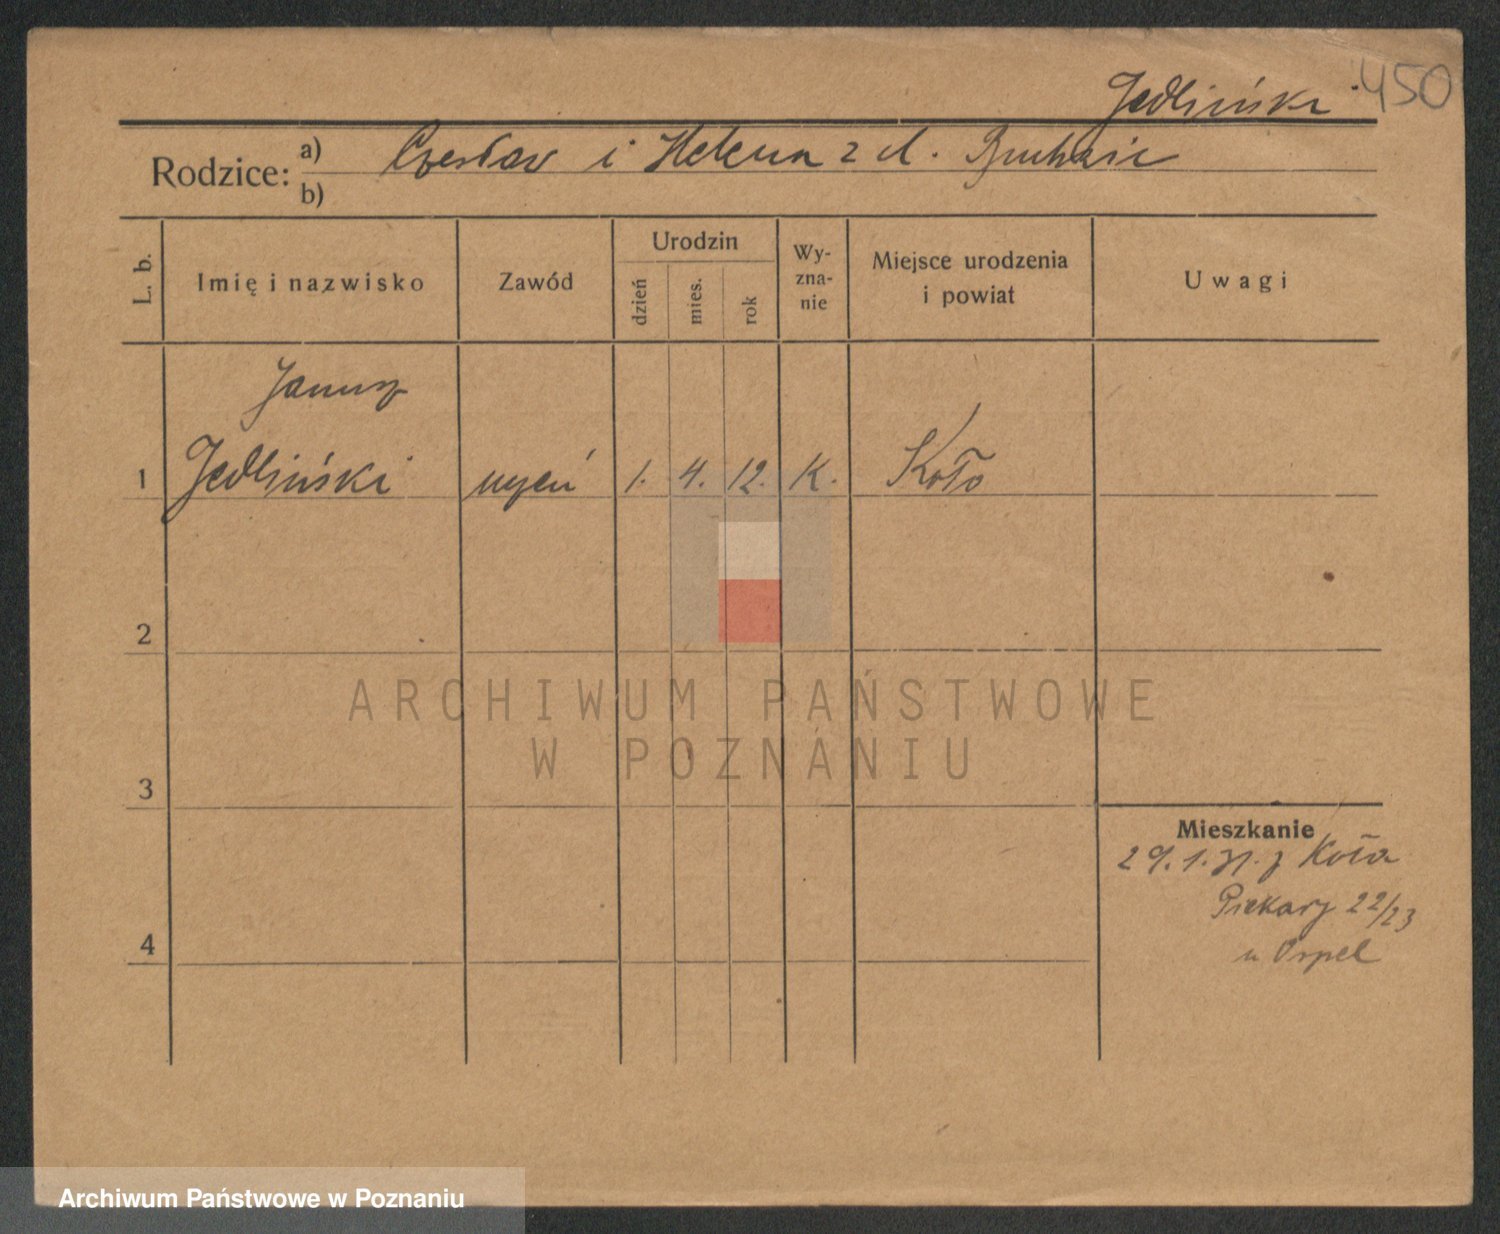 450
Jedlińska
Rodzice: a) Czesław i Helena z d.
b)
L. b.
Imię i nazwisko
Zawód
Urodzin
dzień
mies.
rok
Wy-
zna-
nie
Miejsce urodzenia
i powiat
Uwagi
Janusz
1 Jedliński uczeń 1. 4. 12. K. Koło
2
3
4
Mieszkanie
29.1.31. z Koła
Piekary 22/23
u
ARCHIWUM PAŃSTWOWE
W POZNANIU
Archiwum Państwowe w Poznaniu